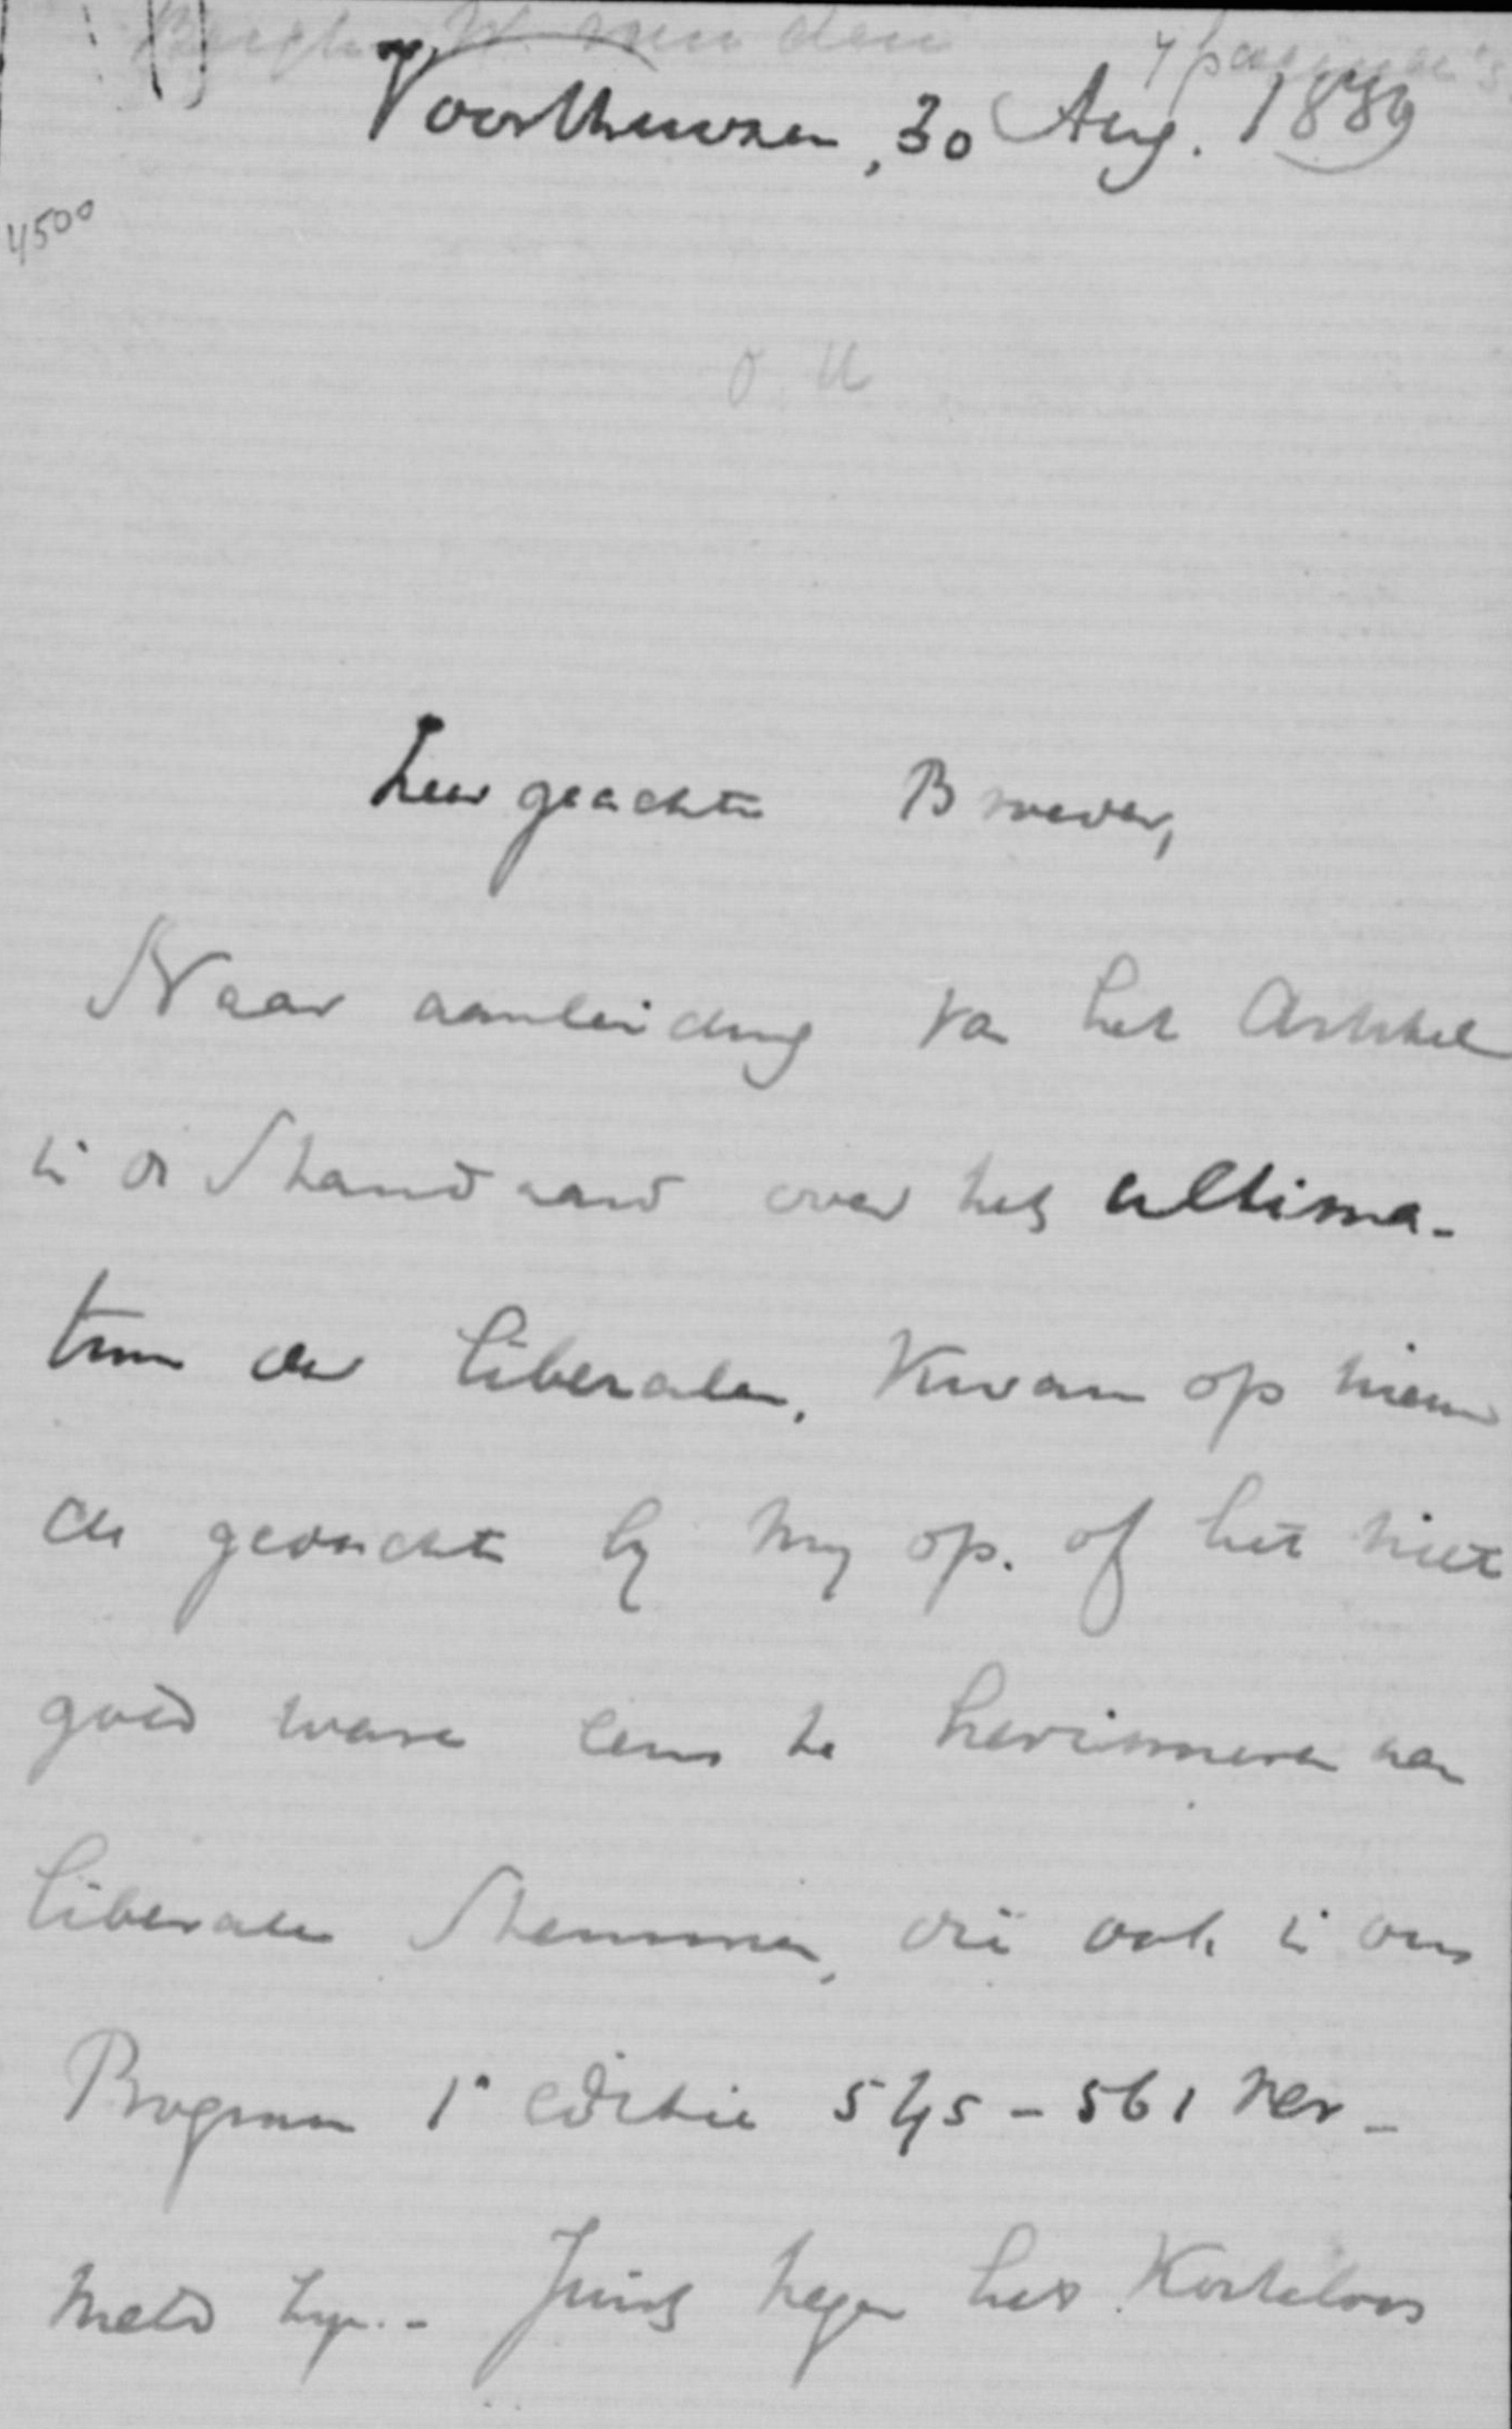 Bergh, W. van den
Voorthuizen, 30 Aug. 1889
4500
O. U
Zeer geachte Broeder,
Naar aanleiding van het Artikel
in de Standaard over het ultima-
tum der liberalen, kwam op nieuw
de gedachte by my op. of het niet
goed ware eens te herinneren aan
liberale Stemmen, die ook in ons
Program 1e editie 545 - 561 ver-
meld zyn. - Juist tegen het Kosteloos